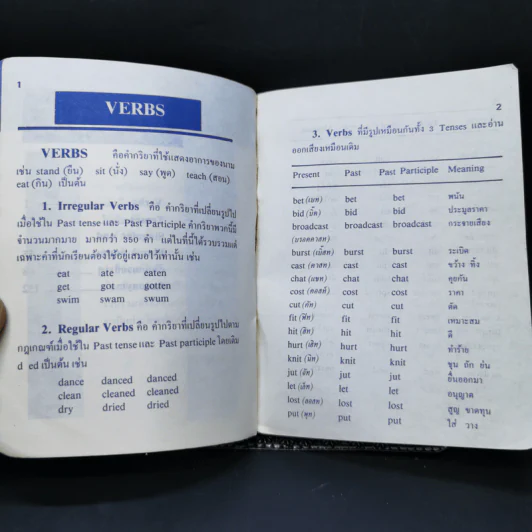 1
VERBS
VERBS คือคำกริยาที่ใช้แสดงอาการของนาม
เช่น stand (ยืน) sit (นั่ง) say (พูด) teach (สอน)
eat (กิน) เป็นต้น
1. Irregular Verbs คือ คำกริยาที่เปลี่ยนรูปไป
เมื่อใช้ใน Past tense และ Past Participle คำกริยาพวกนี้มี
จำนวนมากมาย มากกว่า 350 คำ แต่ในที่นี้ได้รวบรวมแต่
เฉพาะคำที่นักเรียนต้องใช้อยู่เสมอไว้เท่านั้น เช่น
eat ate eaten
get got gotten
swim swam swum
2. Regular Verbs คือ คำกริยาที่เปลี่ยนรูปไปตาม
กฎเกณฑ์เมื่อใช้ใน Past tense และ Past participle โดยเติม
d ed เป็นต้น เช่น
dance danced danced
clean cleaned cleaned
dry dried dried
2
3. Verbs ที่มีรูปเหมือนกันทั้ง 3 Tenses และอ่าน
ออกเสียงเหมือนเดิม
Present Past Past Participle Meaning
bet (เบท) bet bet พนัน
bid (บิ๊ด) bid bid ประมูลราคา
broadcast broadcast broadcast กระจายเสียง
(บรอดคาสท)
burst (เบิ๊สท) burst burst ระเบิด
cast (คาสท) cast cast ขว้าง ทิ้ง
chat (แชท) chat chat คุยกัน
cost (คอสท์) cost cost ราคา
cut (คัท) cut cut ตัด
fit (ฟิท) fit fit เหมาะสม
hit (ฮิท) hit hit ตี
hurt (เฮิท) hurt hurt ทำร้าย
knit (นิท) knit knit ชุน ถัก ย่น
jut (จัท) jut jut ยื่นออกมา
let (เล็ท) let let อนุญาต
lost (ลอสท) lost lost สูญ ขาดทุน
put (พุท) put put ใส่ วาง